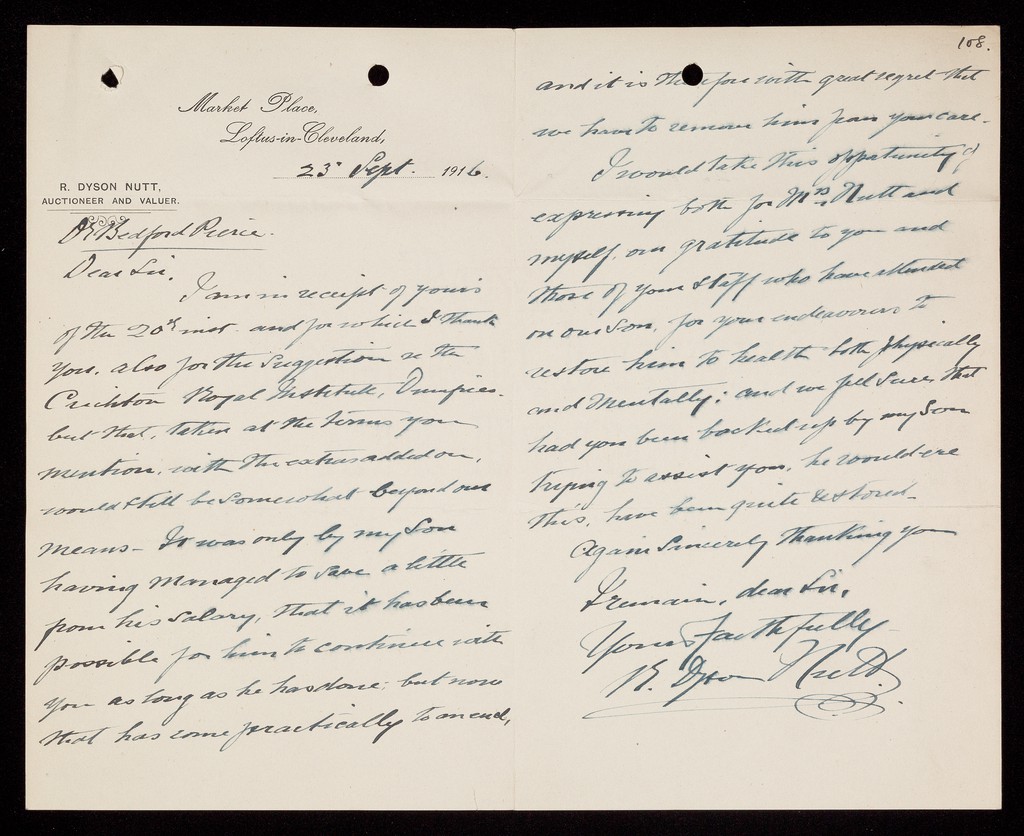 Market Place,
Loftus-in-Cleveland,
23rd Sept. 1916.
R. DYSON NUTT,
AUCTIONEER AND VALUER.
Dr Bedford Pierce.
Dear Sir,
I am in receipt of yours
of the 20th inst. and for which I thank
you, also for the suggestion re the
Crichton Royal Institute, Dumfries.
but that, taken at the terms you
mention, with the extras added on,
would still be somewhat beyond our
means - It was only by my Son
having managed to save a little
from his salary, that it has been
possible for him to continue with
you as long as he has done; but now
that has come practically to an end,
108.
and it is therefore with great regret that
we have to remove him from your care.
I would take this opportunity of
expressing both for Mrs Nutt and
myself, our gratitude to you and
those of your staff who have attended
on our Son, for your endeavours to
restore him to health both physically
and mentally; and we feel sure, that
had you been backed up by my Son
trying to assist you, he would ere
this, have been quite restored.
Again sincerely thanking you
I remain, dear Sir,
Yours faithfully
R. Dyson Nutt